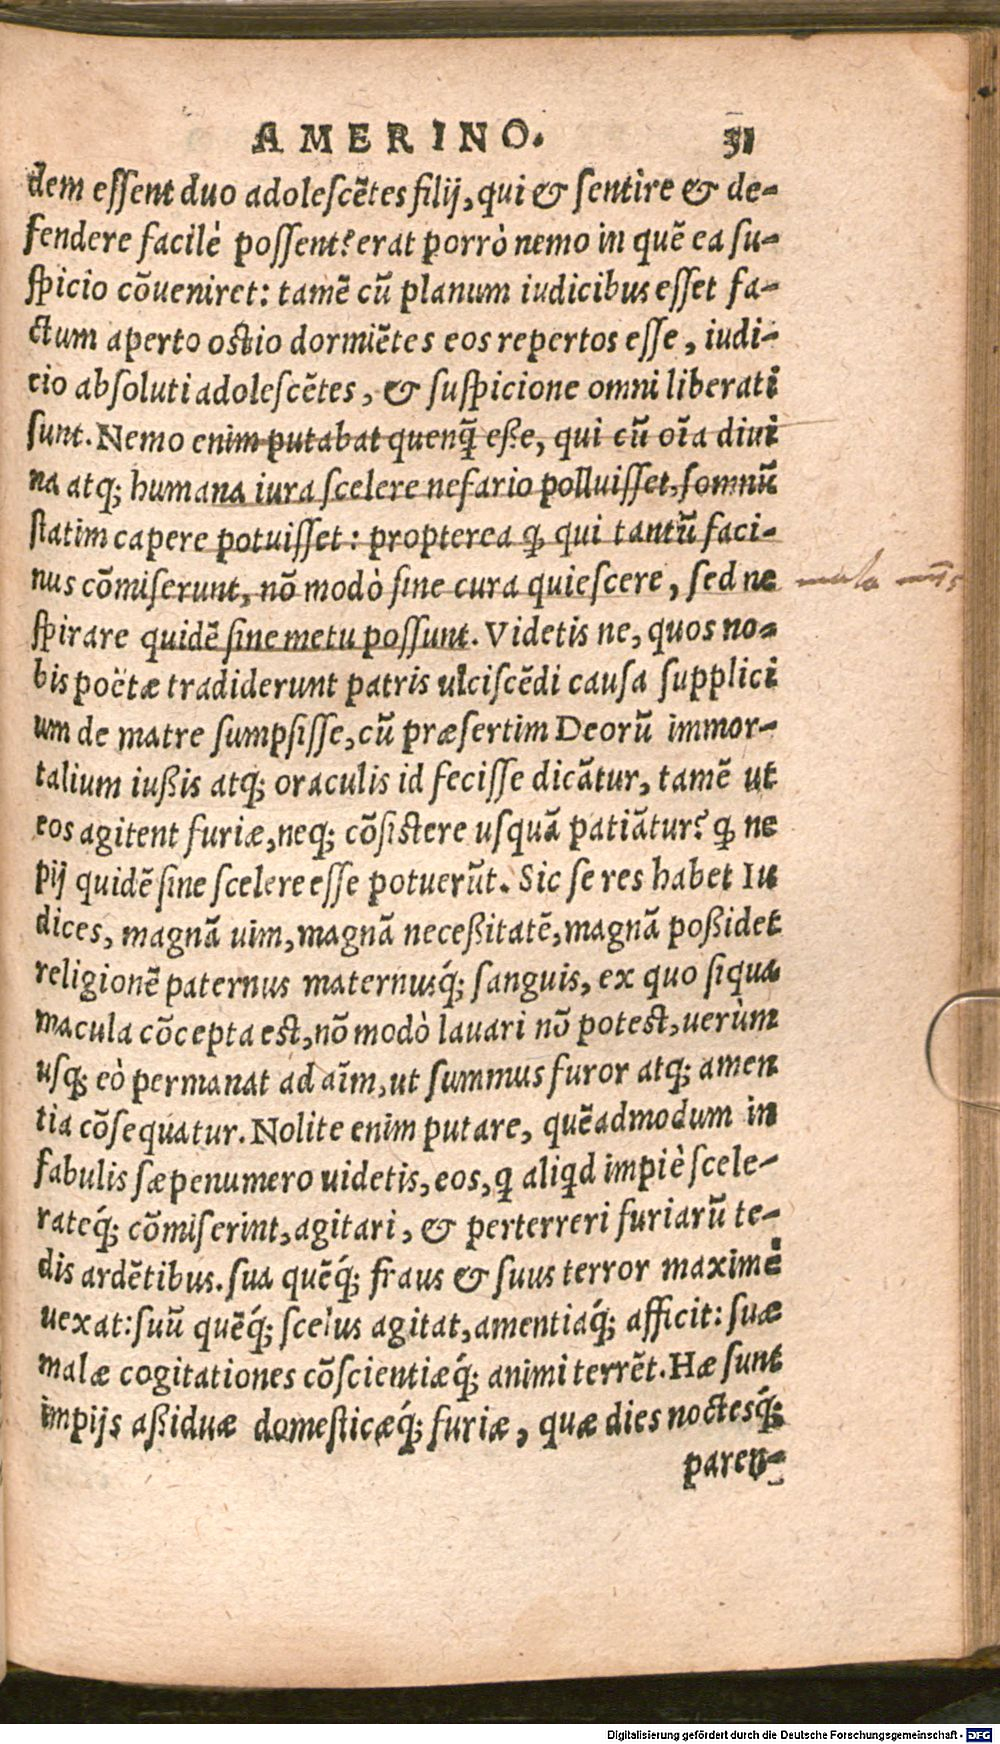 AMERINO. 31
dem eſſent duo adoleſcẽtes filij, qui & ſentire & de-
fendere facilè poſſent? erat porrò nemo in quẽ ea ſu-
ſpicio cõueniret: tamẽ cũ planum iudicibus eſſet fa-
ctum aperto oſtio dormiẽtes eos repertos eſſe, iudi-
cio abſoluti adoleſcẽtes, & ſuſpicione omni liberati
ſunt. Nemo enim putabat quenq̃ eſſe, qui cũ oĩa diui
na atq; humana iura ſcelere nefario polluiſſet, ſomnũ
ſtatim capere potuiſſet: propterea ꝙ qui tantũ faci-
nus cõmiſerunt, nõ modò ſine cura quieſcere, ſed ne
ſpirare quidẽ ſine metu poſſunt. Videtis ne, quos no-
bis poëtæ tradiderunt patris ulciſcẽdi cauſa ſupplici
um de matre ſumpſiſſe, cũ præſertim Deorũ immor-
talium iußis atq; oraculis id feciſſe dicãtur, tamẽ ut
eos agitent furiæ, neq; cõſiſtere uſquã patiãtur? ꝙ ne
pij quidẽ ſine ſcelere eſſe potuerũt. Sic ſe res habet Iu
dices, magnã uim, magnã neceßitatẽ, magnã poßidet
religionẽ paternus maternusq́; ſanguis, ex quo ſiqua
macula cõcepta eſt, nõ modò lauari nõ poteſt, uerùm
uſq; eò permanat ad aĩm, ut ſummus furor atq; amen
tia cõſequatur. Nolite enim putare, quẽadmodum in
fabulis ſæpenumero uidetis, eos, q aliqd impiè ſcele-
rateq́; cõmiſerint, agitari, & perterreri furiarũ te-
dis ardẽtibus. ſua quẽq́; fraus & ſuus terror maximè
uexat: ſuũ quẽq́; ſcelus agitat, amentiaq́; afficit: ſuæ
malæ cogitationes cõſcientiæq́; animi terrẽt. Hæ ſunt
impijs aßiduæ domeſticæq́; furiæ, quæ dies noctesq́;
paren-
mala
Digitalisierung gefördert durch die Deutsche Forschungsgemeinschaft - DFG